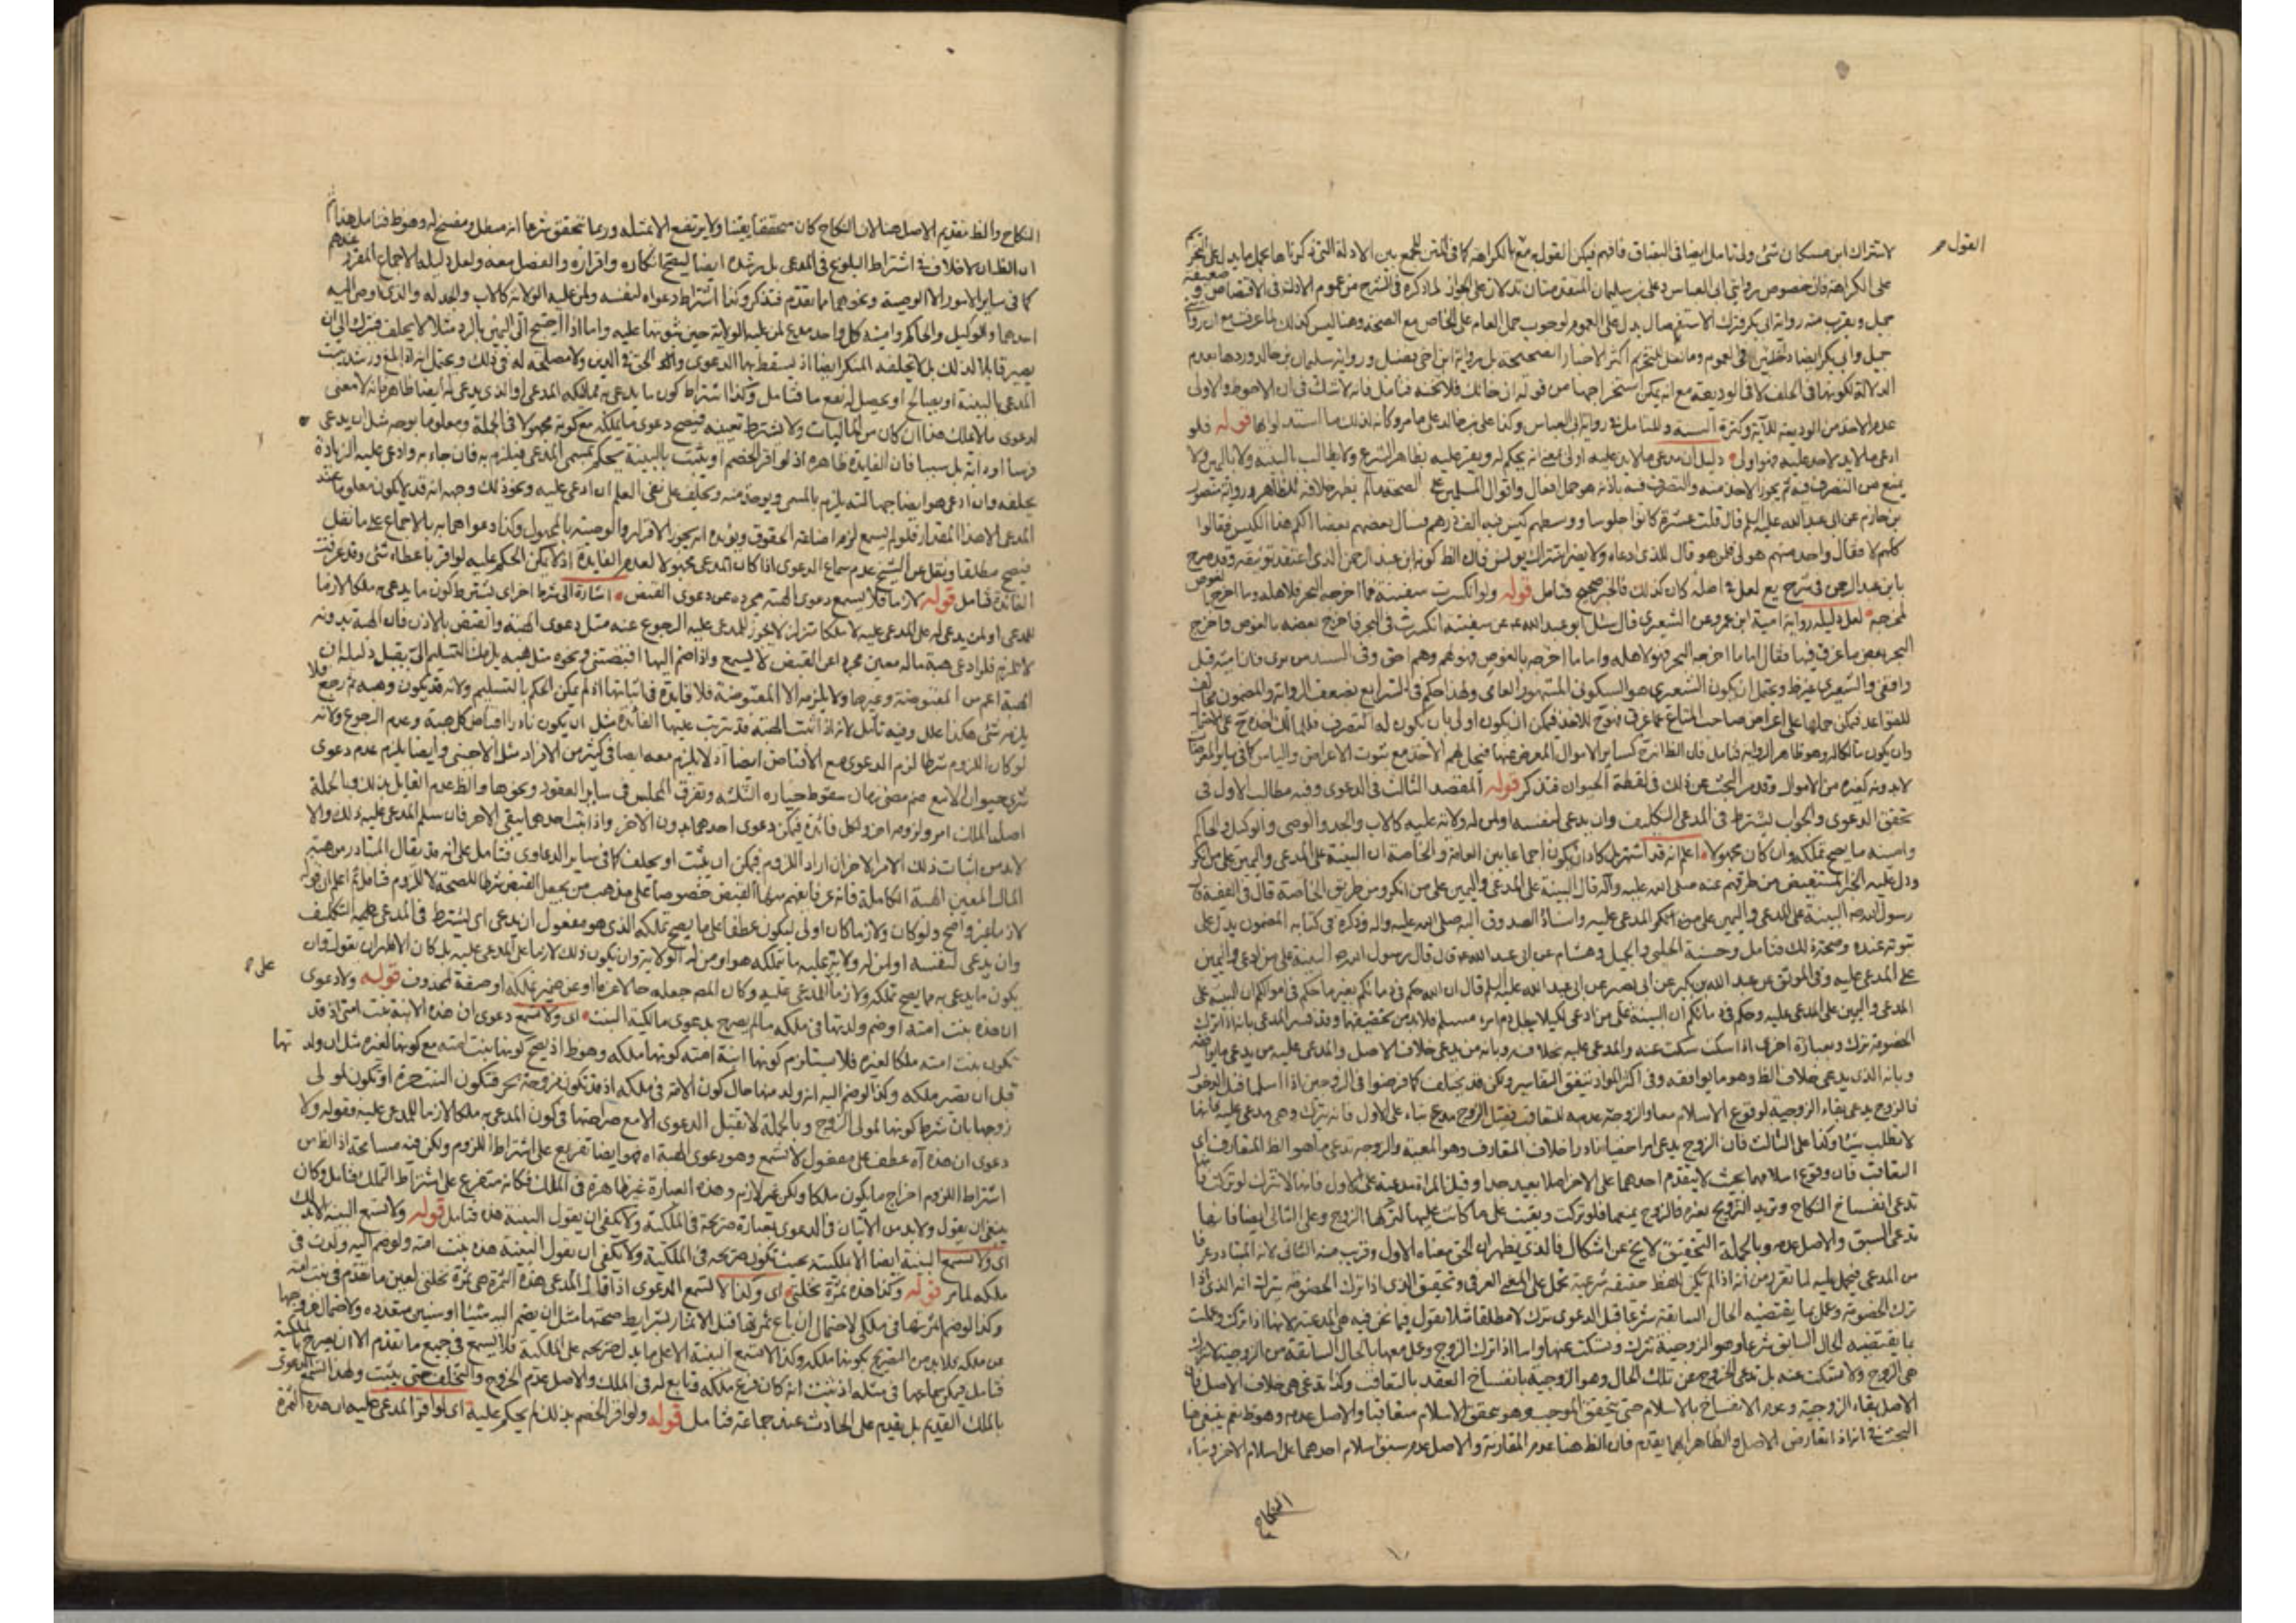 القول
لاشتراك ابن مسكان شئ ولى تامل ايضا فى فافهم فيمكن القول مع الكراهة كما فى المتن للجمع بين الادلة التى ذكرناها بحمل ما يدل على التحريم
على الكراهة فان خصوص روايتى ابى العباس وعلى بن سليمان المتقدمتان تدلان على الجواز لما ذكره فى الشرح من عموم الاذن فى الاقتصاص و ضعيفة
جميل ويقرب منه رواية ابى بكر فترك الاستفصال يدل على العموم لوجوب حمل العام على الخاص مع الصحة وهنا ليس كذلك لما عرفت مع ان رواية
جميل وابى بكر ايضا داخلتين فى العموم وما نقل للتحريم اكثر الاخبار الصحيحة بل رواية ابن اخى فضيل ورواية سليمان بن خالد وردها بعدم
الدلالة لكونها فى الحلف لا فى الوديعة مع انه يمكن استخراجها من قوله ان خانك فلا تخنه فتامل فانه لا شك فى ان الاحوط والاولى
عدم الاخذ من الوديعة للآية وكثرة السنة وللتامل فى رواية ابى العباس وكذا على بن خالد على ما مر وكانه لذلك ما استدلوا بها قوله فلو
ادعى ما لا يد لاحد عليه فهو اولى دليل ان مدعى ما لا يد عليه اولى بمعنى انه يحكم له ويقر عليه بظاهر الشرع ولا يطالب بالبينة ولا باليمين ولا
يمنع من التصرف فيه ثم يجوز الاخذ منه والتصرف فيه باذنه هو حمل افعال واقوال المسلمين على الصحة ما لم يظهر خلافه للظاهر ورواية منصور
بن حازم عن ابى عبد الله عليه السلم قال قلت عشرة كانوا جلوسا ووسطهم كيس فيه الف درهم فسال بعضهم بعضا الكم هذا الكيس فقالوا
كلهم لا فقال واحد منهم هو لى فلمن هو قال للذى ادعاه ولا يضر اشتراك يونس فان الظ كونه ابن عبد الرحمن الذى اعتقد توثيقه وقد صرح
بابن عبد الرحمن فى شرح يع لعل فى اصله كان كذلك فالخبر صحيح فتامل قوله ولو انكسرت سفينة فما اخرجه البحر فلاهله وما اخرج بالغوص
لمخرجه لعل دليله رواية امية ابن عمرو عن الشعيرى قال سئل ابو عبد الله عن سفينة انكسرت فى البحر فاخرج بعضه بالغوص واخرج
البحر بعض ما غرق فيها فقال اما ما اخرجه البحر فهو لاهله واما ما اخرجه بالغوص فهو لهم وهم احق وفى السند من ترى فان امية قيل
واقفى والشعيرى غير ظ ويحتمل ان يكون الشعيرى هو السكونى المشهور العامى ولهذا حكم فى الشرايع بضعف الرواية والمضمون مخالف
للقواعد فيمكن حملها على اعراض صاحب المتاع عما غرق فيبيح للاخذ فيمكن ان يكون اولى بان يكون له التصرف
وان يكون مالكا له وهو ظاهر الرواية فتامل فان الظ انه كساير الاموال المعرض عنها فيحل لهم الاخذ مع ثبوت الاعراض والياس كما فى ساير
لا بدونه كغيره من الاموال وقد مر البحث عن ذلك فى لقطة الحيوان فتذكر قوله المقصد الثالث فى الدعوى وفيه مطالب الاول فى
تحقق الدعوى والجواب يشترط فى المدعى التكليف وان يدعى لنفسه او لمن له ولاية عليه كالاب والجد والوصى والوكيل والحاكم
وامينه ما يصح تملكه وان كان مجهولا اعلم انه قد اشتهر بل كاد ان يكون اجماعا بين العامة والخاصة ان البينة على المدعى واليمين على من انكر
ودل عليه الخبر المستفيض من طرقهم عنه صلى الله عليه وآله قال البينة على المدعى واليمين على من انكر ومن طريق الخاصة قال فى الفقيه قال
رسول الله ص البينة على المدعى واليمين على من انكر المدعى عليه واسناد الصدوق اليه صلى الله عليه واله وذكره فى كتابه المضمون يدل على
ثبوته عنده وصحته ذلك فتامل وحسنة الحلبى وجميل وهشام عن ابى عبد الله ع قال قال رسول الله ص البينة على من ادعى واليمين
على المدعى عليه وفى الموثق عن عبد الله بن بكير عن ابى بصير عن ابى عبد الله عليه السلم قال ان الله حكم فى دمائكم بغير ما حكم فى اموالكم ان البينة على
المدعى واليمين على المدعى عليه وحكم فى دمائكم ان البينة على من ادعى لكيلا يبطل دم امرء مسلم فلا بد من تحقيقها وقد فسر المدعى بانه اذا ترك
الخصومة ترك وبعبارة اخرى اذا سكت سكت عنه والمدعى عليه بخلافه وبانه من يدعى خلاف الاصل والمدعى عليه من يدعى ما يوافقه
وبانه الذى يدعى خلاف الظ وهو ما يوافقه وفى اكثر المواد تتفق التفاسير ولكن قد يختلف كما فرضوا فى الزوجين اذا اسلما قبل الدخول
فالزوج يدعى بقاء الزوجية لوقوع الاسلام معا والزوجة عدمه للتعاقب فقيل الزوج مدع بناء على الاول فانه يترك وهى مدعى عليه فانها
لا تطلب شيئا وكذا على الثالث فان الزوج يدعى امرا خفيا نادرا خلاف المتعارف وهو المعية والزوجة تدعى ما هو الظ المتعارف اى
التعاقب فان وقوع اسلامهما بحيث لا يتقدم احدهما على الاخر اصلا بعيد جدا وقيل المراة مدعية على الاول فانها لا تترك لو تركت فانها
تدعى انفساخ النكاح وتريد التزويج بغيره فالزوج يمنعها فلو تركت وبقيت على ما كانت عليها لتركها الزوج وعلى الثانى ايضا فانها
تدعى السبق والاصل عدمه وبالجملة التحقيق لا يخ عن اشكال فالذى يظهر ان الحق معناه الاول وقرب منه الثانى لانه المتبادر عرفا
من المدعى فيحمل عليه لما تقرر من أنه اذا لم يكن للفظ حقيقة شرعية تحمل على المعنى العرفى وتحقيق الذى اذا ترك الخصومة يترك انه الذى اذا
ترك الخصومة وعمل بما يقتضيه الحال السابقة شرعا قبل الدعوى ترك لا مطلقا مثلا نقول فيما نحن فيه هى المدعية لانها اذا تركت وعملت
بما يقتضيه الحال السابق شرعا وهو الزوجية تترك وسكت عنها واما اذا ترك الزوج وعمل معها بالحال السابقة من الزوجية لا تترك
هى الزوج ولا تسكت عنه بل تدعى الخروج عن تلك الحال وهو الزوجية بانفساخ العقد بالتعاقب وكذا تدعى هى خلاف الاصل فان
الاصل بقاء الزوجية وعدم الانفساخ بالاسلام حتى يتحقق الموجب وهو تحقق الاسلام متعاقبا والاصل عدمه وهو ظ نعم ينبغى هنا
البحث فى انه اذا تعارض الاصل والظاهر ايهما يقدم فان الظ هنا عدم المقارنة والاصل عدم سبق اسلام احدهما على اسلام الاخر وبقاء
النكاح
النكاح والظ تقديم الاصل هنا لان النكاح كان محققا يقينا ولا يرتفع الا بمثله وربما تحقق شرعا انه مبطل ومفسخ له وهو ظ فتامل هذا ثم
ان الظ ان لا خلاف فى اشتراط البلوغ فى المدعى بل رشده ايضا ليصح انكاره واقراره والفصل معه ولعل دليله الاجماع المقرر عندهم
كما فى ساير الامور الا الوصية ونحوها ما تقدم فتذكر وكذا اشتراط دعواه لنفسه ولمن عليه الولاية كالاب والجد له والذى اوصى اليه
احدهما والوكيل والحاكم وامينه كل واحد مدع لمن عليه الولاية حين ثبوتها عليه واما اذا احتيج الى اليمين بالرد مثلا لا يحلف فيترك الى ان
يصير قابلا لذلك بل لا يحلفه المنكر ايضا اذ يسقط بها الدعوى والحق فى الدين ولا مصلحة له فى ذلك ويحتمل انه اذا بلغ ورشد يثبت
المدعى بالبينة او يصالح او يحصل له نفع ما فتامل وكذا اشتراط كون ما يدعى به مما تملكه المدعى او الذى يدعى له ايضا ظاهر فانه لا معنى
لدعوى ما لا تملك هذا ان كان من الماليات ولا يشترط تعيينه فيصح دعوى ما تملكه مع كونه مجهولا فى الجملة ومعلوما بوجه مثل ان يدعى
فرسا او دابة بل شيئا فان الفايدة ظاهرة اذ لو اقر الخصم او يثبت بالبينة يحكم بمسمى المدعى فيلزم به فان جاء به وادعى عليه الزيادة
يحلفه وان ادعى هو ايضا جهالته يلزم بالمسمى ويوخذ منه ويحلف على نفى العلم ان ادعى عليه ونحو ذلك وجهه انه قد لا يكون معلوما عند
المدعى الا هذا المقدار فلو لم يسمع لزم اضاعة الحقوق ويؤيده انه يجوز الاقرار والوصية بالمجهول وكذا دعواهما به بالاجماع على ما نقل
فيصح مطلقا ونقل عن الشيخ عدم سماع الدعوى اذا كان المدعى مجهولا لعدم الفايدة اذ لا يمكن الحكم عليه لو اقر باعطاء شئ وقد عرفت
الفائدة فتامل قوله لازما فلا يسمع دعوى الهبة مجرده عن دعوى القبض اشارة الى شرط اخر اى يشترط كون ما يدعى به ملكا لازما
للمدعى او لمن يدعى له على المدعى عليه لا ملكا متزلزلا يجوز للمدعى عليه الرجوع عنه مثل دعوى الهبة والقبض بالاذن فان الهبة بدونه
لا تلزم فلو ادعى هبة ماله معين مجردا عن القبض لا يسمع واذا ضم اليها اقبضتنى ونحوه مثل هبه يلزمك التسليم الى يقبل دليله ان
الهبة اعم من المقبوضة وغيرها ولا يلزم الا المقبوضة فلا فايدة فى اثباتها اذ لم يمكن الحكم بالتسليم ولانه قد يكون وهبه ثم رجع فلا
يلزمه شئ هكذا علل وفيه تامل لانه اذا اثبت الهبة قد يترتب عليها الفائدة مثل ان يكون نادرا اقباض كل هبة وعدم الرجوع ولانه
لو كان اللزوم شرطا لزم الدعوى مع الاقباض ايضا اذ لا يلزم معه ايضا فى كثير من الافراد مثل الاجنبى وايضا يلزم عدم دعوى
شرى حيوان الا مع ضم مضى زمان سقوط خياره الثلثه وتفرق المجلس فى ساير العقود ونحوها والظ عدم القايل بذلك وبالجملة
اصل الملك امر ولزومه اخر ولكل فائدة فيمكن دعوى احدهما بدون الاخر واذا ثبت احدهما يبقى الاخر فان سلم المدعى عليه ذلك والا
لا بد من اثبات ذلك الامر الاخر ان اراد اللزوم فيمكن ان يثبت او يحلف كما فى ساير الدعاوى فتامل على انه قد يقال المتبادر من هبة
المال المعين الهبة الكاملة فانه عرفا يفهم منها القبض خصوصا على مذهب من يجعل القبض شرطا للصحة لا للزوم فتامل ثم اعلم ان قوله
لازما غير واضح ولو كان ولازما كان اولى ليكون عطفا على ما يصح تملكه الذى هو مفعول ان يدعى اى يشترط فى المدعى عليه التكليف
وان يدعى لنفسه او لمن له ولاية عليه ما تملكه هو او من له الولاية وان يكون ذلك لازما على المدعى عليه بل كان الاظهر ان يقول وان
على
يكون ما يدعى به مما يصح تملكه ولازما للمدعى عليه وكان المص جعله حالا عن ما او عن ضمير تملكه او صفة لمحذوف قوله ولا دعوى
ان هذه بنت امته او ضم ولدتها فى ملكه ما لم يصرح بدعوى مالكية البنت اى ولا تسمع دعوى ان هذه الابنة بنت امتى اذ قد
تكون بنت امته ملكا لغيره فلا يستلزم كونها ابنة امته كونها ملكه وهو ظ اذ يصح كونها بنت امته مع كونها لغيره مثل ان ولدتها
قبل ان يصير ملكه وكذا لو ضم اليه انه ولد منها حال كون الامة فى ملكه اذ قد تكون مزوجة بحر فتكون البنت حرة او تكون لمولى
زوجها بان شرط كونها لمولى الزوج وبالجملة لا تقبل الدعوى الا مع صراحتها فى كون المدعى به ملكا لازما للمدعى عليه فقوله ولا
دعوى ان هذه آه عطف على مفعول لا تسمع وهو دعوى الهبة اه فهو ايضا تفريع على اشتراط اللزوم ولكن فيه مسامحة اذ الظ من
اشتراط اللزوم اخراج ما يكون ملكا ولكن غير لازم وهذه العبارة غير ظاهرة فى الملك فكانه متفرع على اشتراط التملك فتامل وكان
ينبغى ان يقول ولا بد من الاتيان فى الدعوى بعبارة صريحة فى الملكية ولا يكفى ان يقول البينة هذه فتامل قوله ولا تسمع البينة الا بذلك
اى ولا تسمع البينة ايضا الا بملكيته بحيث تكون صريحة فى الملكية ولا يكفى ان يقول البينة هذه بنت امته ولو ضم اليه ولدت فى
ملكه لما مر قوله وكذا هذه ثمرة نخلتى اى وكذا لا تسمع الدعوى اذا قال المدعى هذه الثمرة هى ثمرة نخلتى لعين ما تقدم فى بنت امته
وكذا لو ضم اثمرتها فى ملكى لاحتمال ان باع ثمرتها قبل الاثمار بشرايط صحتها مثل ان يضم اليه شيئا او سنين متعدده ولاحتمال خروجها
عن ملكه فلا بد من التصريح بكونها ملكه وكذا لا تسمع البينة الا على ما يدل صريحه على الملكية فلا يسمع فى جميع ما تقدم الا ان يصرح بالملكية
فتامل فيمكن سماعها فى مثله اذ ثبت انه كان فرع ملكه فتابع له فى الملك والاصل عدم الخروج والتخلف حتى يثبت ولهذا تسمع الدعوى
بالملك القديم بل يقدم على الحادث عند جماعة فتامل قوله ولو اقر الخصم بذلك لم يحكم عليه اى لو اقر المدعى عليه ان هذه الثمرة